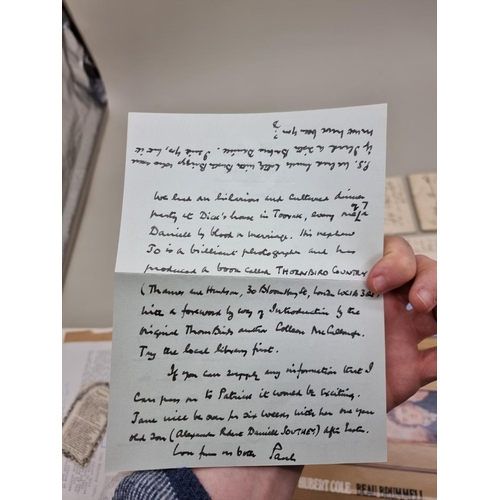 We had an hilarious and cultured dinner
party at Dick's house in Toorak, every
Daniell by blood or marriage. His nephew
Jo is a brilliant photographer and has
produced a book called THORNBIRD COUNTRY
(Thames and Hudson, 30 Bloomsbury St, London
with a foreword by way of Introduction by the
original Thornbirds author Colleen McCullough.
Try the local library first.
If you can supply any information that I
can pass on to Patrick it would be exciting.
Jane will be over for six weeks with her one year
old son (Alexander Robert Daniell SOUTHEY) after Easter.
Love from us both Paul
P.S. We had lunch with Briggs
if I had a sister Daniell. I said yes, but it
must have been you?
HUBERT COLE BEAU BRUMMELL